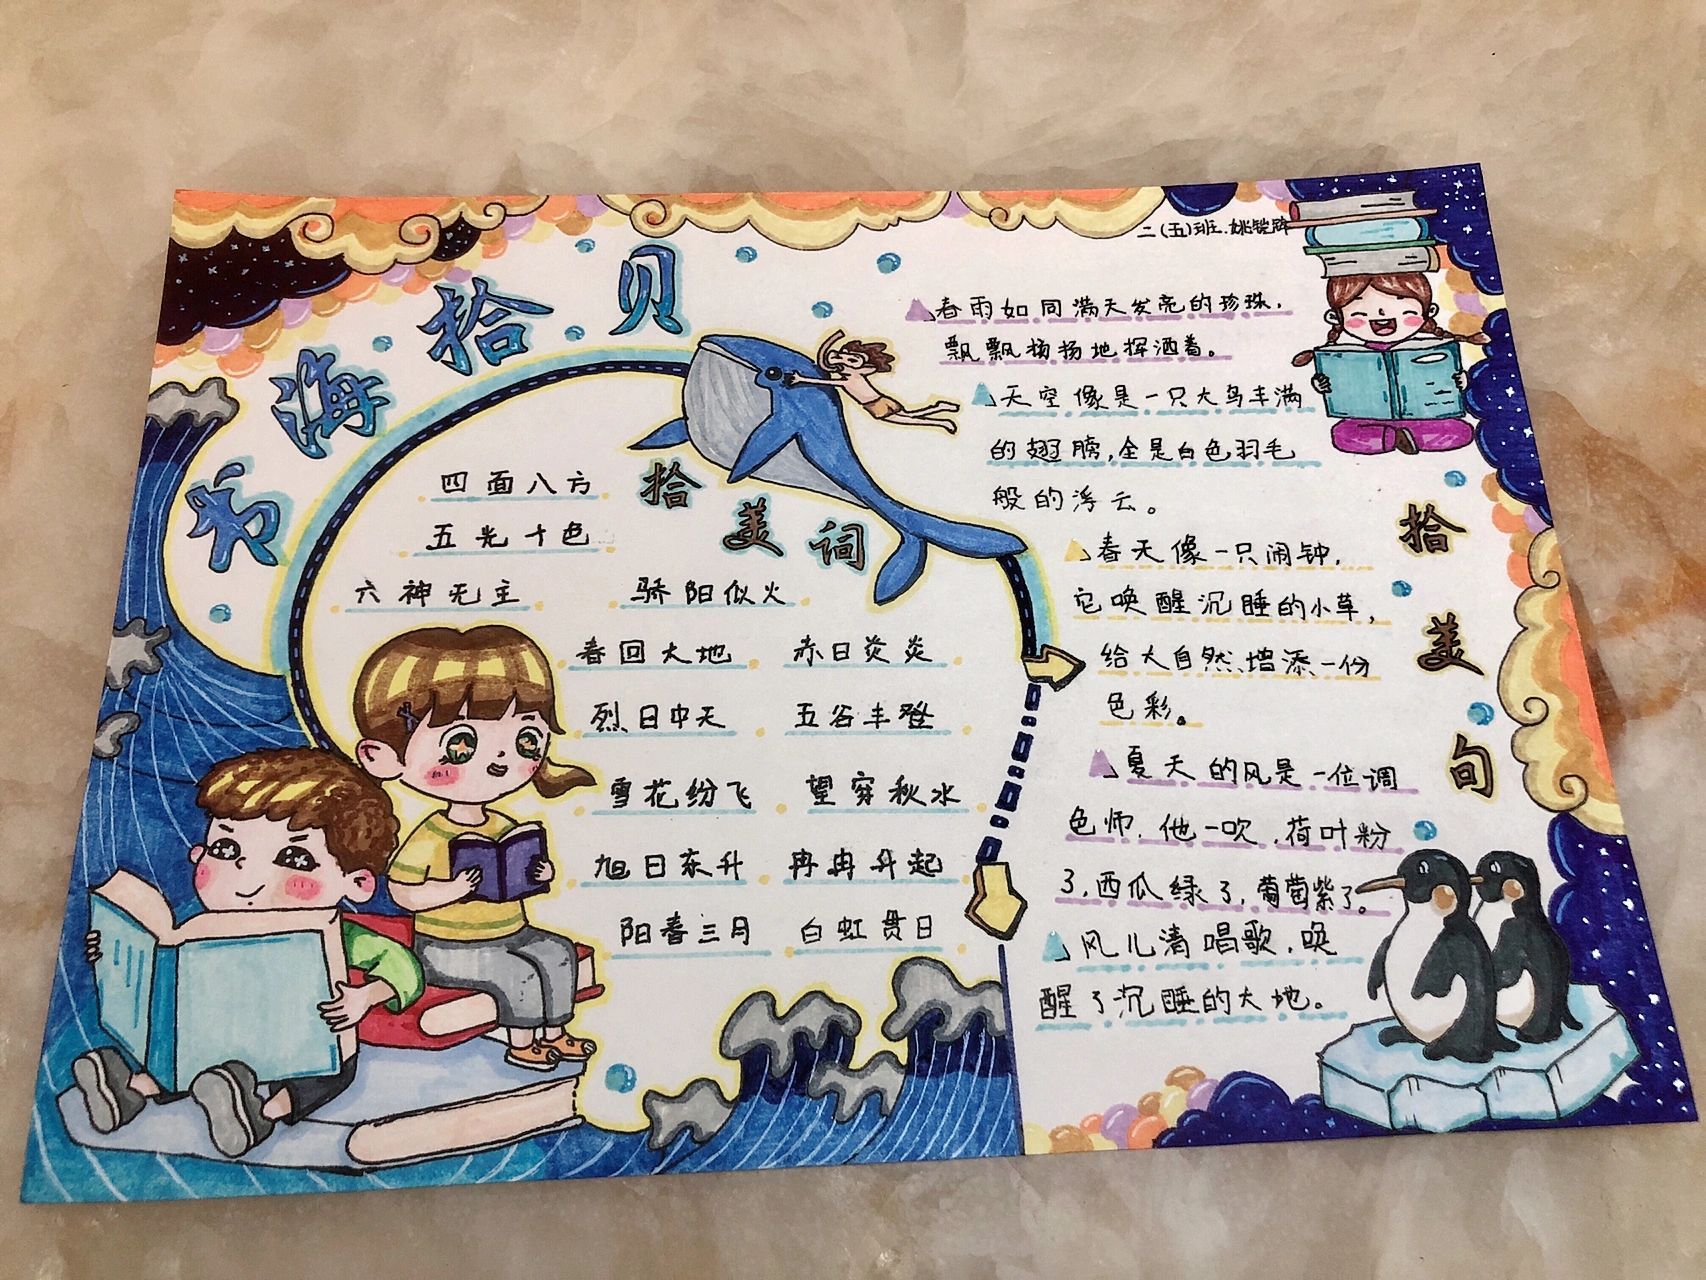 书海拾贝
二(五)班.姚铠
拾美词
四面八方
五光十色
六神无主 骄阳似火
春回大地 赤日炎炎
烈日中天 五谷丰登
雪花纷飞 望穿秋水
旭日东升 冉冉升起
阳春三月 白虹贯日
拾美句
春雨如同满天发亮的珍珠,
飘飘扬扬地挥洒着。
天空像是一只大鸟丰满
的翅膀,全是白色羽毛
般的浮云。
春天像一只闹钟,
它唤醒沉睡的小草,
给大自然增添一份
色彩。
夏天的风是一位调
色师,他一吹,荷叶粉
了,西瓜绿了,葡萄紫了。
风儿清唱歌,唤
醒了沉睡的大地。